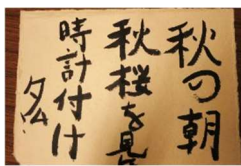 秋の朝
秋桜を見
時計付け